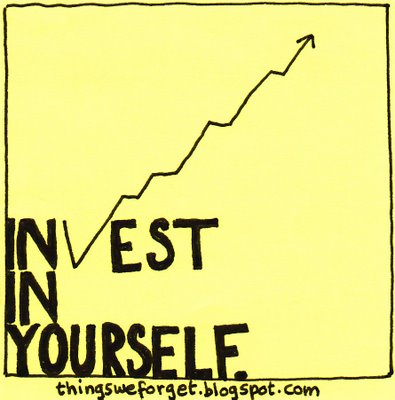 INVEST
IN
YOURSELF.
thingsweforget.blogspot.com